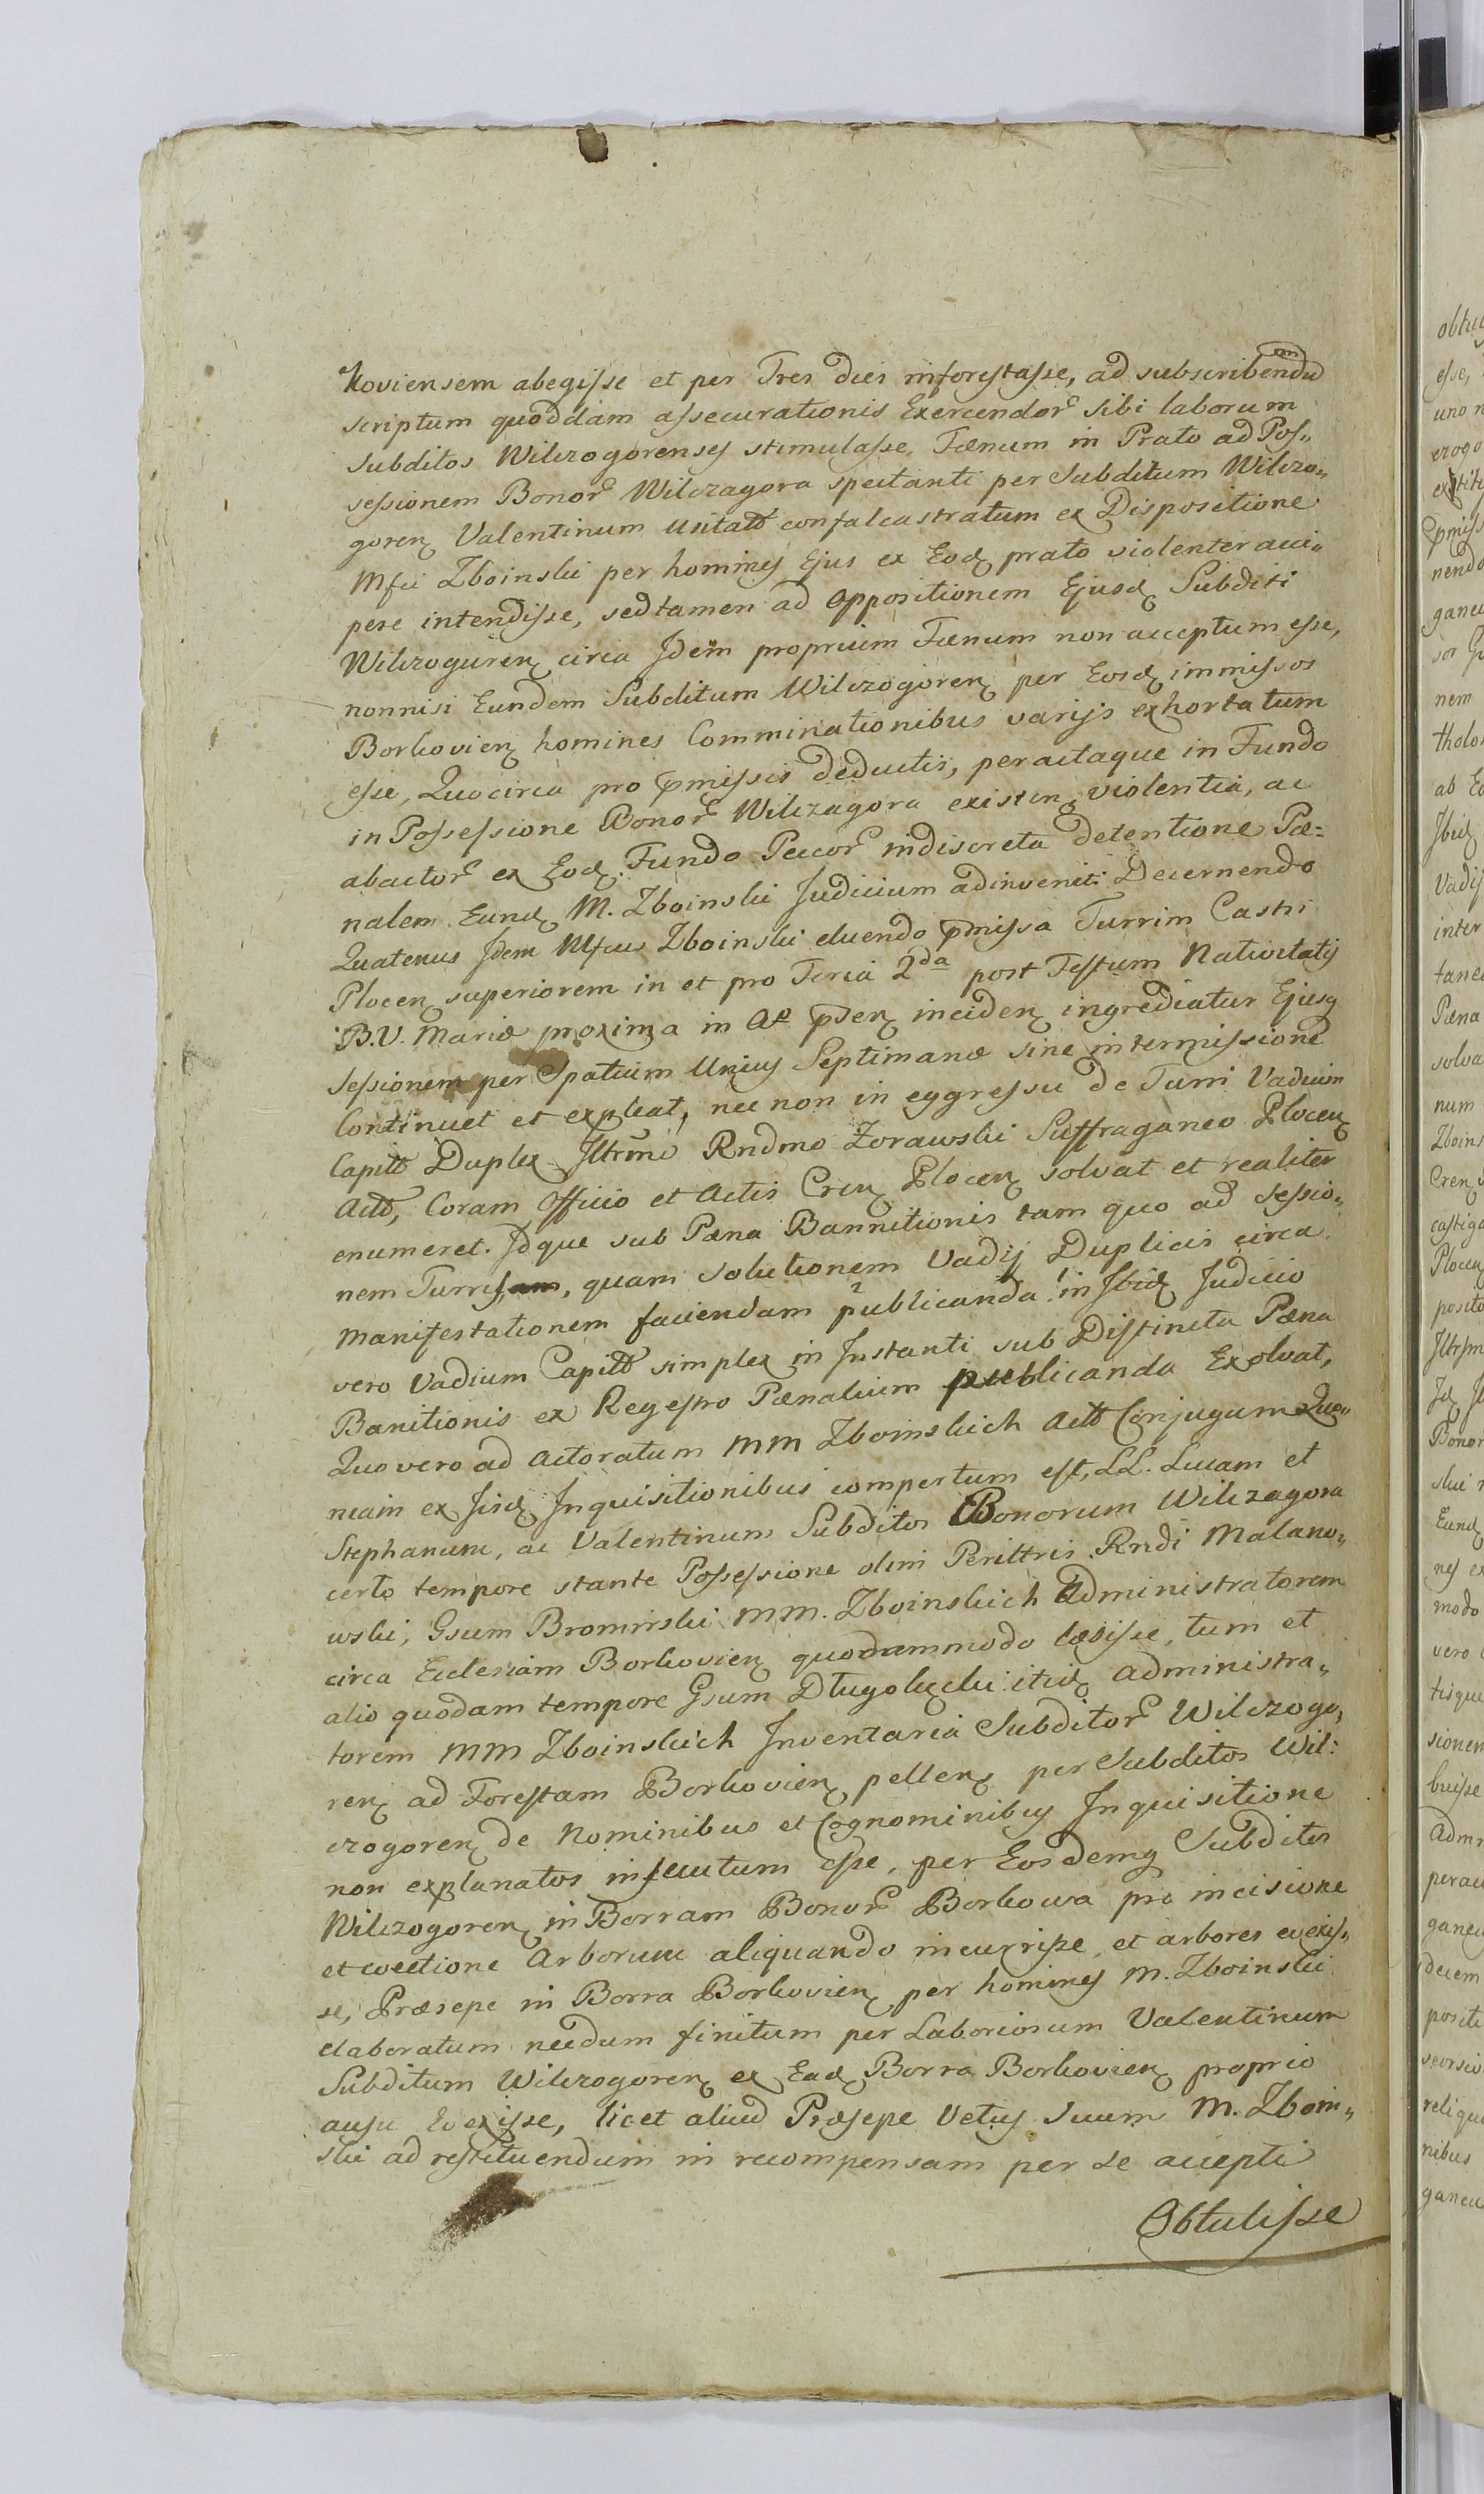 koviensem abegisse et per Tres dies inforestasse, ad subscribendum
scriptum quoddam assecurationis Exercendor sibi laborum
Subditos Wilczogorenses stimulasse, Fænum in Prato ad Pos„
sessionem Bonor Wilczagora spectanti per Subditum Wilczo„
goren Valentinum usitato confalcastratum ex Dispositione
Mfci Zboinski per homines Ejus ex Eod prato violenter acci„
pere intendisse, sed tamen ad oppositionem Ejusd Subditi
Wilczoguren circa Idem proprium Fænum non acceptum esse,
nonnisi Eundem Subditum Wilczogoren per Eosd immissos
Borkovien homines Comminationibus varijs exhortatum
esse, Quocirca pro pmissis deductis, peractaque in Fundo
in Possessione Bonor Wilczagora existen violentia, ac
abactor ex Eod Fundo Pecor indiscreta detentione Pæ=
nalem Eund M. Zboinski Judicium adinvenit. Decernendo
Quatenus Idem Mfcus Zboinski eluendo pmissa Turrim Castri
Plocen superiorem in et pro Feria 2da post Festum Nativitatis
B.V. Mariæ proxima in Ao pden inciden ingrediatur Ejusq
sessionem per Spatium Unius Septimanæ sine intermissione
Continuet et expleat, nec non in eggressu de Turri Vadium
Capitt Duplex Illrmo Rndmo Zorawski Suffraganeo Plocen
Actt, Coram Officio et Actis Cren Plocen solvat et realiter
enumeret. Idque sub Pæna Bannitionis tam quo ad sessio„
nem Turris, quam solutionem Vadij Duplicis circa
manifestationem faciendam publicanda! in Ibid Judicio
vero Vadium Capitt simplex in Instanti sub Distincta Pæna
Banitionis ex Regestro Pænalium publicanda Exolvat,
Quo vero ad Actoratum MM Zboinskich Actt Conjugum Quo„
niam ex Iisd Inquisitionibus compertum est, LL. Lucam et
Stephanum, ac Valentinum Subditos Bonorum Wilczagora
certo tempore stante Possessione olim Perilltris Rndi Malano„
wski, Gsum Bromirski MM. Zboinskich Administratorem
circa Ecclesiam Borkovien quodammodo læsisse, tum et
alio quodam tempore Gsum Długołęcki itid Administra„
torem MM Zboinskich Inventaria Subditor Wilczogo„
ren ad Forestam Borkovien pellen per Subditos Wil:
czogoren de Nominibus et Cognominibus Inquisitione
non explanatos insecutum esse, per Eosdemq Subditos
Wilczogoren in Borram Bonor Borkowa pro incisione
et evectione Arborum aliquando incurrisse, et arbores evexis„
se, Præsepe in Borra Borkovien per homines M. Zboinski
elaboratum necdum finitum per Laboriosum Valentinum
Subditum Wilczogoren ex Ead Borra Borkovien proprio
ausu Evexisse, licet aliud Præsepe Vetus Suum M. Zboin„
ski ad restituendum in recompensam per se accepti
Obtulisse